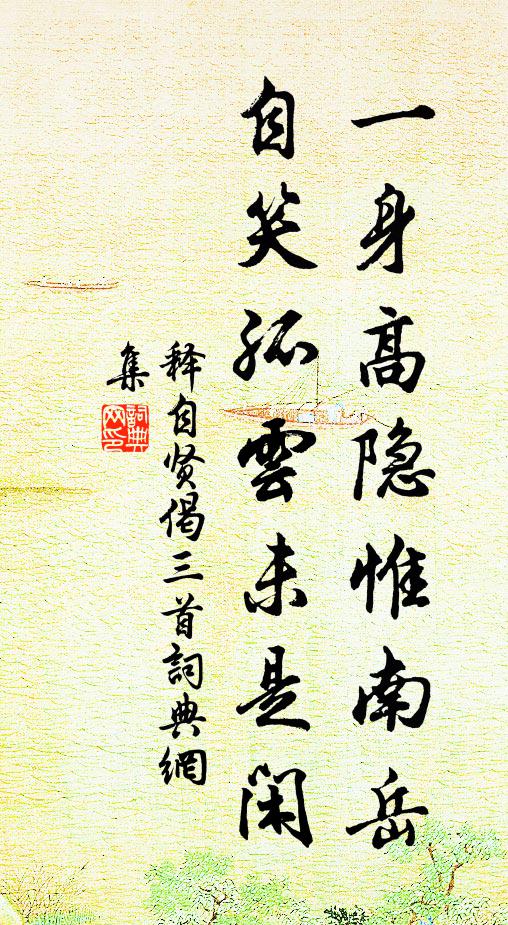 一身高隐惟南岳
自笑孤雲未是闲
释自贤偈三首詞典網
集
詞典
网印